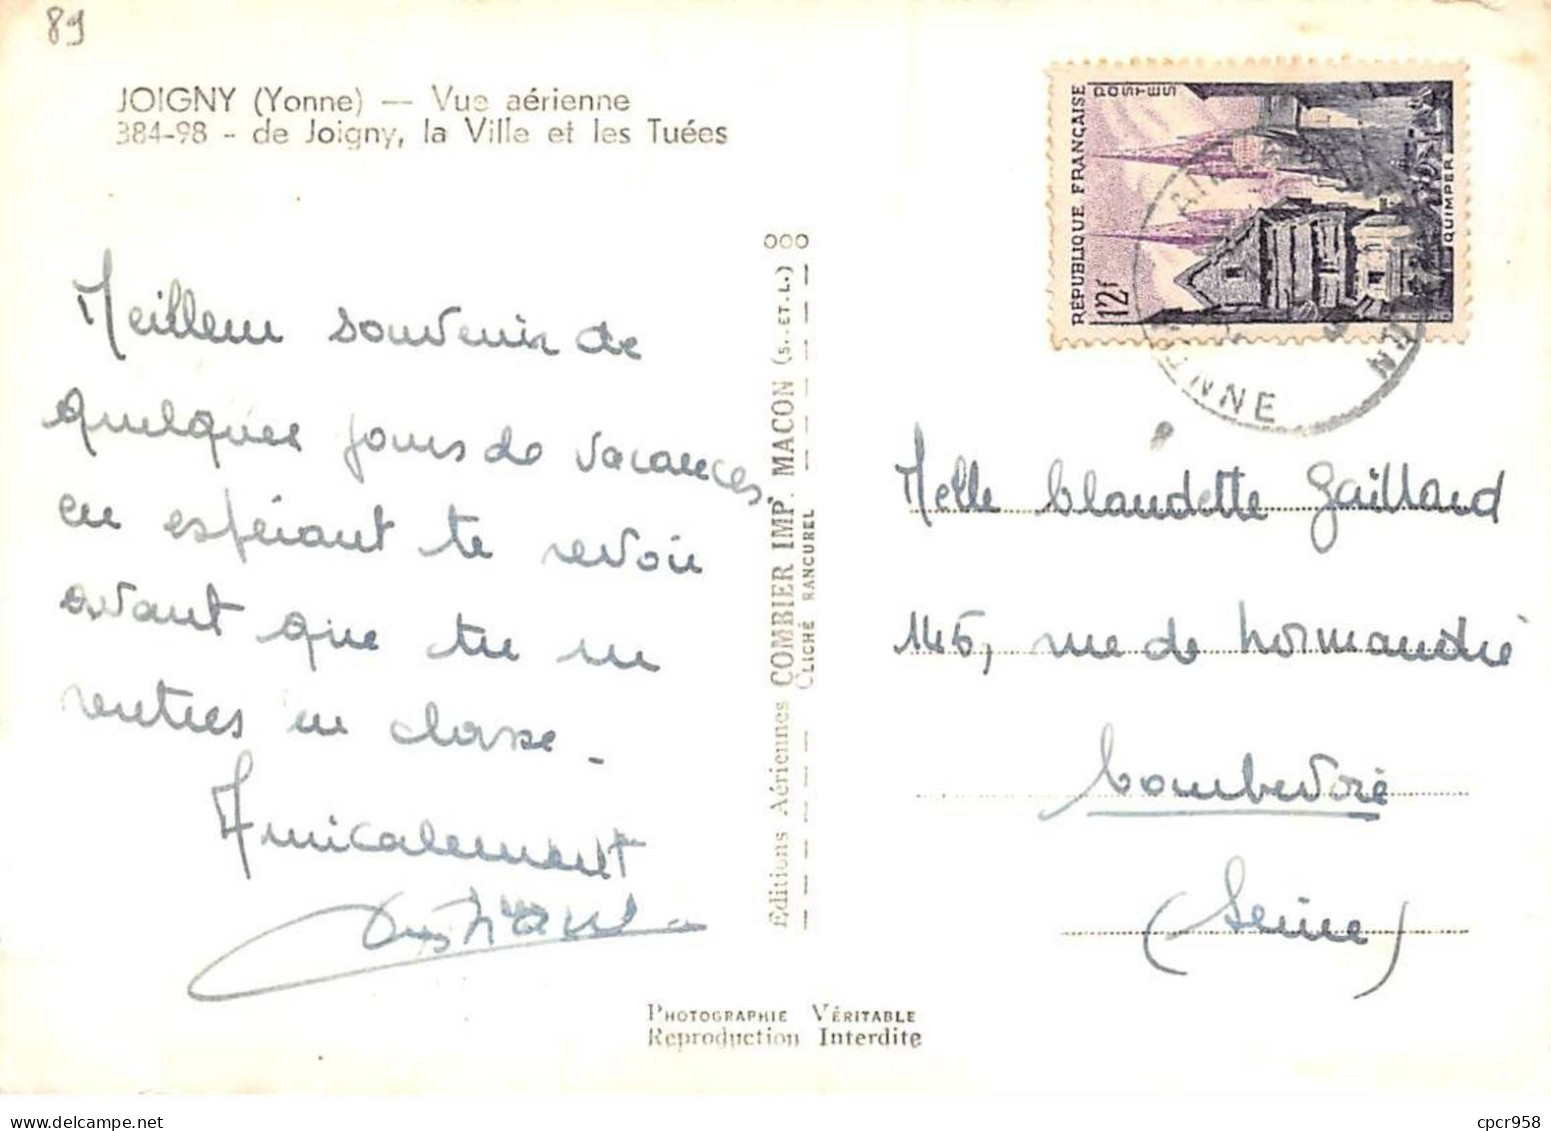 89
JOIGNY (Yonne) — Vue aérienne
384-98 - de Joigny, la Ville et les Tuées
Meilleur souvenir de
quelques jours de vacances
en espérant te revoir
avant que tu ne
rentres en classe.
Amicalement
OOO
Editions Aériennes COMBIER IMP. MACON (S.-ET-L.)
CLICHÉ RANCUREL
PHOTOGRAPHIE VÉRITABLE
Reproduction Interdite
RÉPUBLIQUE FRANÇAISE
POSTES
12f
QUIMPER
YONNE
Melle Claudette Gaillard
145, rue de Normandie
Courbevoie
(Seine)
cpcr958